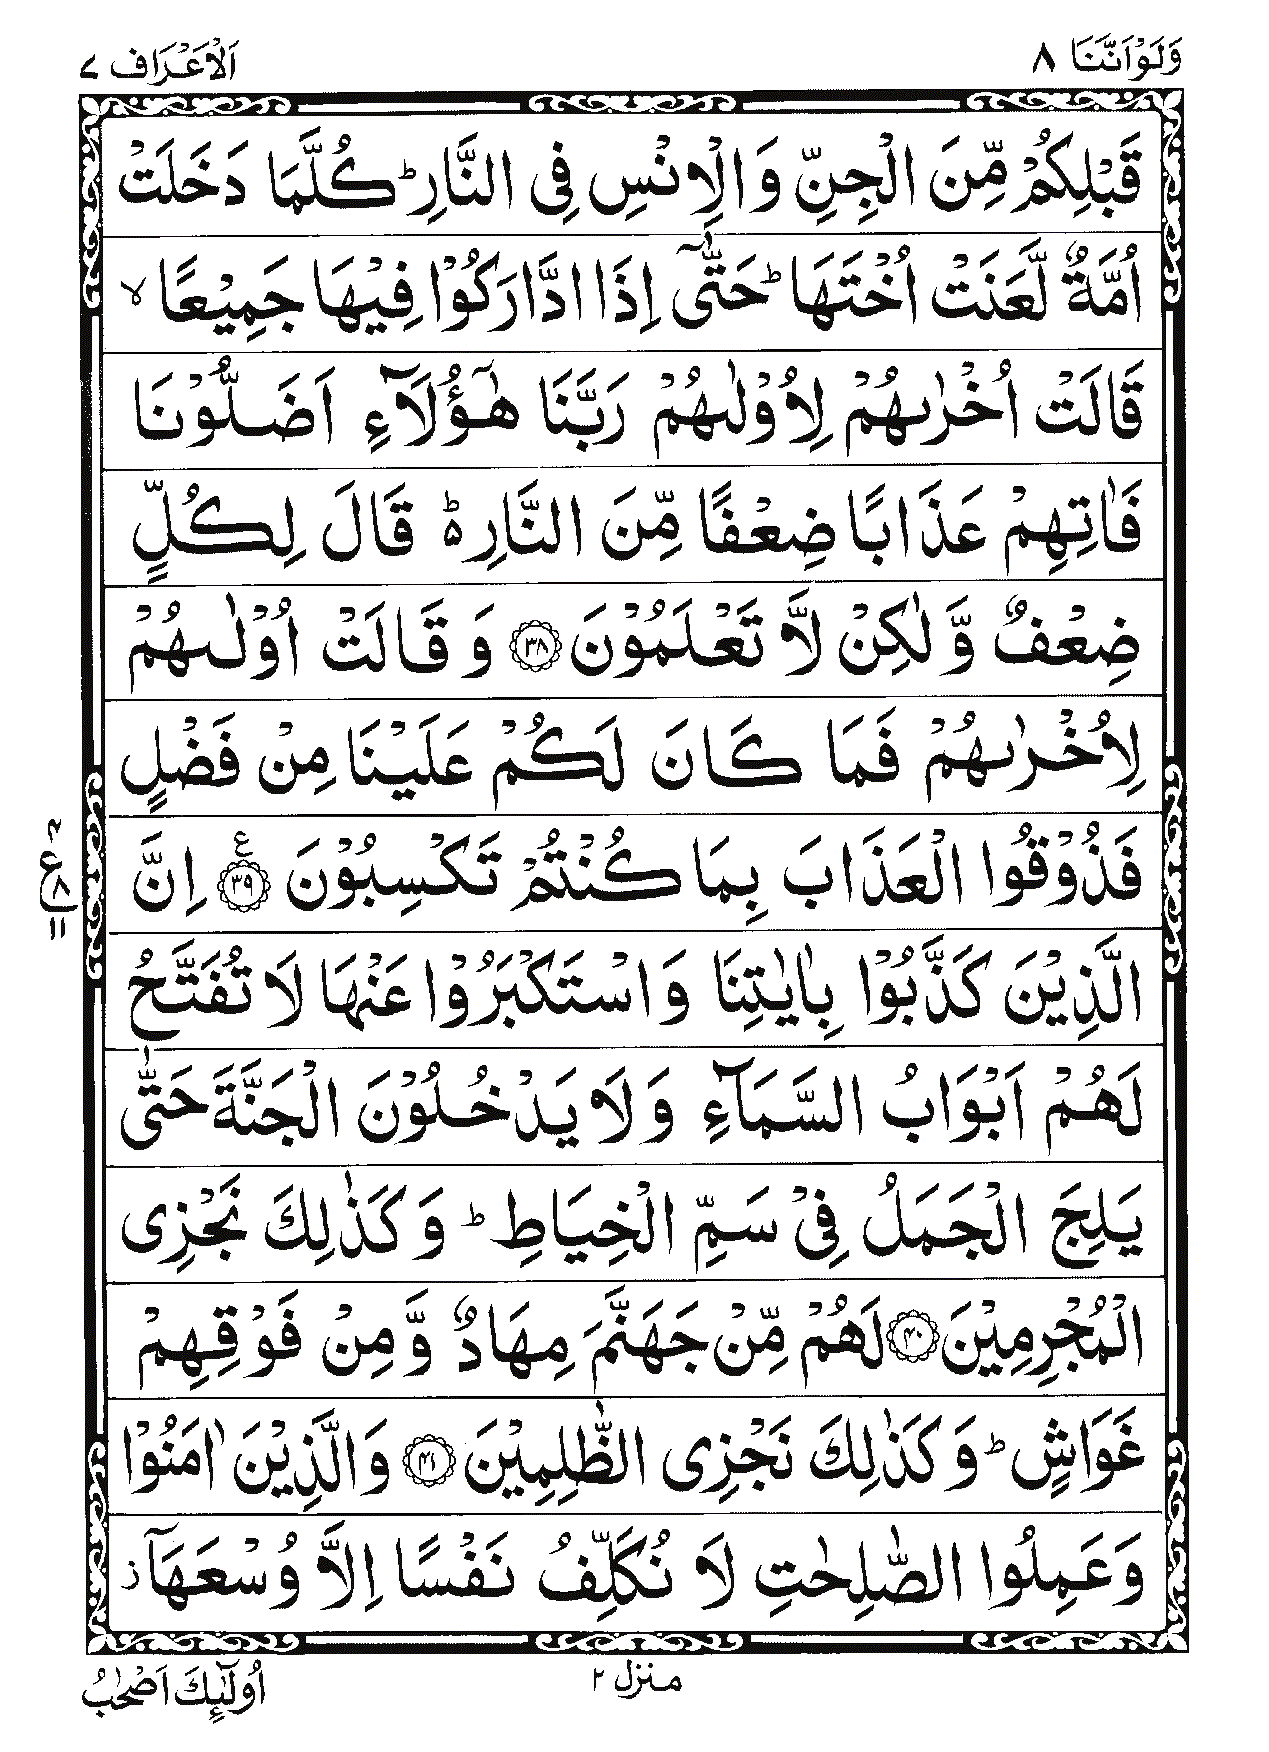 وَلَوْاَنَّنَا ٨
اَلْاَعْرَاف ٧
قَبْلِكُمْ مِّنَ الْجِنِّ وَ الْاِنْسِ فِی النَّارِ ؕ كُلَّمَا دَخَلَتْ
اُمَّةٌ لَّعَنَتْ اُخْتَهَا ؕ حَتّٰۤی اِذَا ادَّارَكُوْا فِیْهَا جَمِیْعًا ۙ
قَالَتْ اُخْرٰىهُمْ لِاُوْلٰىهُمْ رَبَّنَا هٰۤؤُلَآءِ اَضَلُّوْنَا
فَاٰتِهِمْ عَذَابًا ضِعْفًا مِّنَ النَّارِ ؕ۬ قَالَ لِكُلٍّ
ضِعْفٌ وَّ لٰكِنْ لَّا تَعْلَمُوْنَ ٣٨ وَ قَالَتْ اُوْلٰىهُمْ
لِاُخْرٰىهُمْ فَمَا كَانَ لَكُمْ عَلَیْنَا مِنْ فَضْلٍ
فَذُوْقُوا الْعَذَابَ بِمَا كُنْتُمْ تَكْسِبُوْنَ ٣٩ ع اِنَّ
٤
ع ٨
١١
الَّذِیْنَ كَذَّبُوْا بِاٰیٰتِنَا وَ اسْتَكْبَرُوْا عَنْهَا لَا تُفَتَّحُ
لَهُمْ اَبْوَابُ السَّمَآءِ وَ لَا یَدْخُلُوْنَ الْجَنَّةَ حَتّٰی
یَلِجَ الْجَمَلُ فِیْ سَمِّ الْخِیَاطِ ؕ وَ كَذٰلِكَ نَجْزِی
الْمُجْرِمِیْنَ ٤٠ لَهُمْ مِّنْ جَهَنَّمَ مِهَادٌ وَّ مِنْ فَوْقِهِمْ
غَوَاشٍ ؕ وَ كَذٰلِكَ نَجْزِی الظّٰلِمِیْنَ ٤١ وَ الَّذِیْنَ اٰمَنُوْا
وَ عَمِلُوا الصّٰلِحٰتِ لَا نُكَلِّفُ نَفْسًا اِلَّا وُسْعَهَاۤ ز
منزل ٢
اُولٰٓئِكَ اَصْحٰبُ